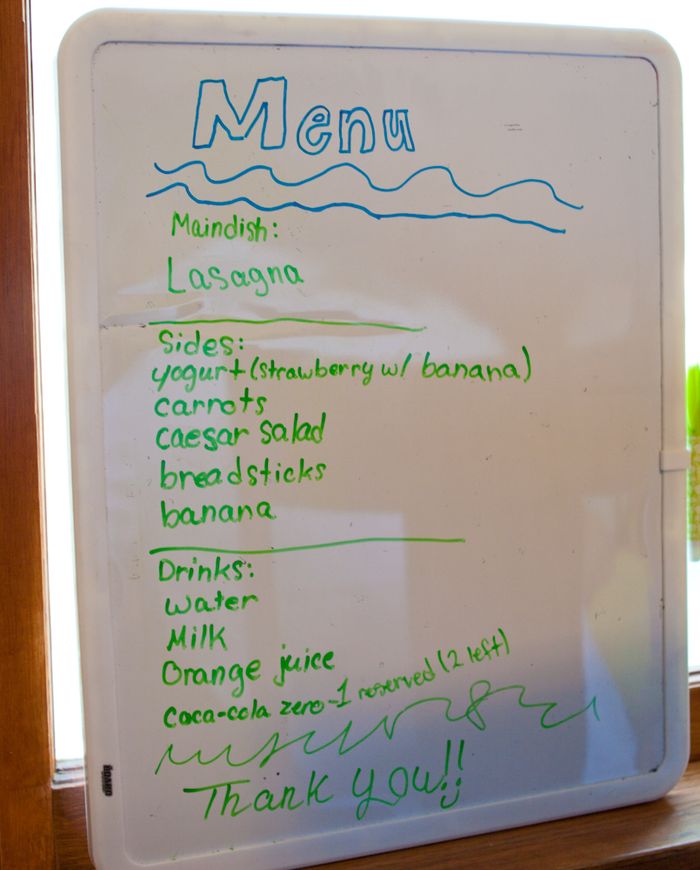 Menu
Maindish:
Lasagna
Sides:
yogurt (strawberry w/ banana)
carrots
caesar salad
breadsticks
banana
Drinks:
water
Milk
Orange juice
Coca-cola zero-1 reserved (2 left)
Thank you!!